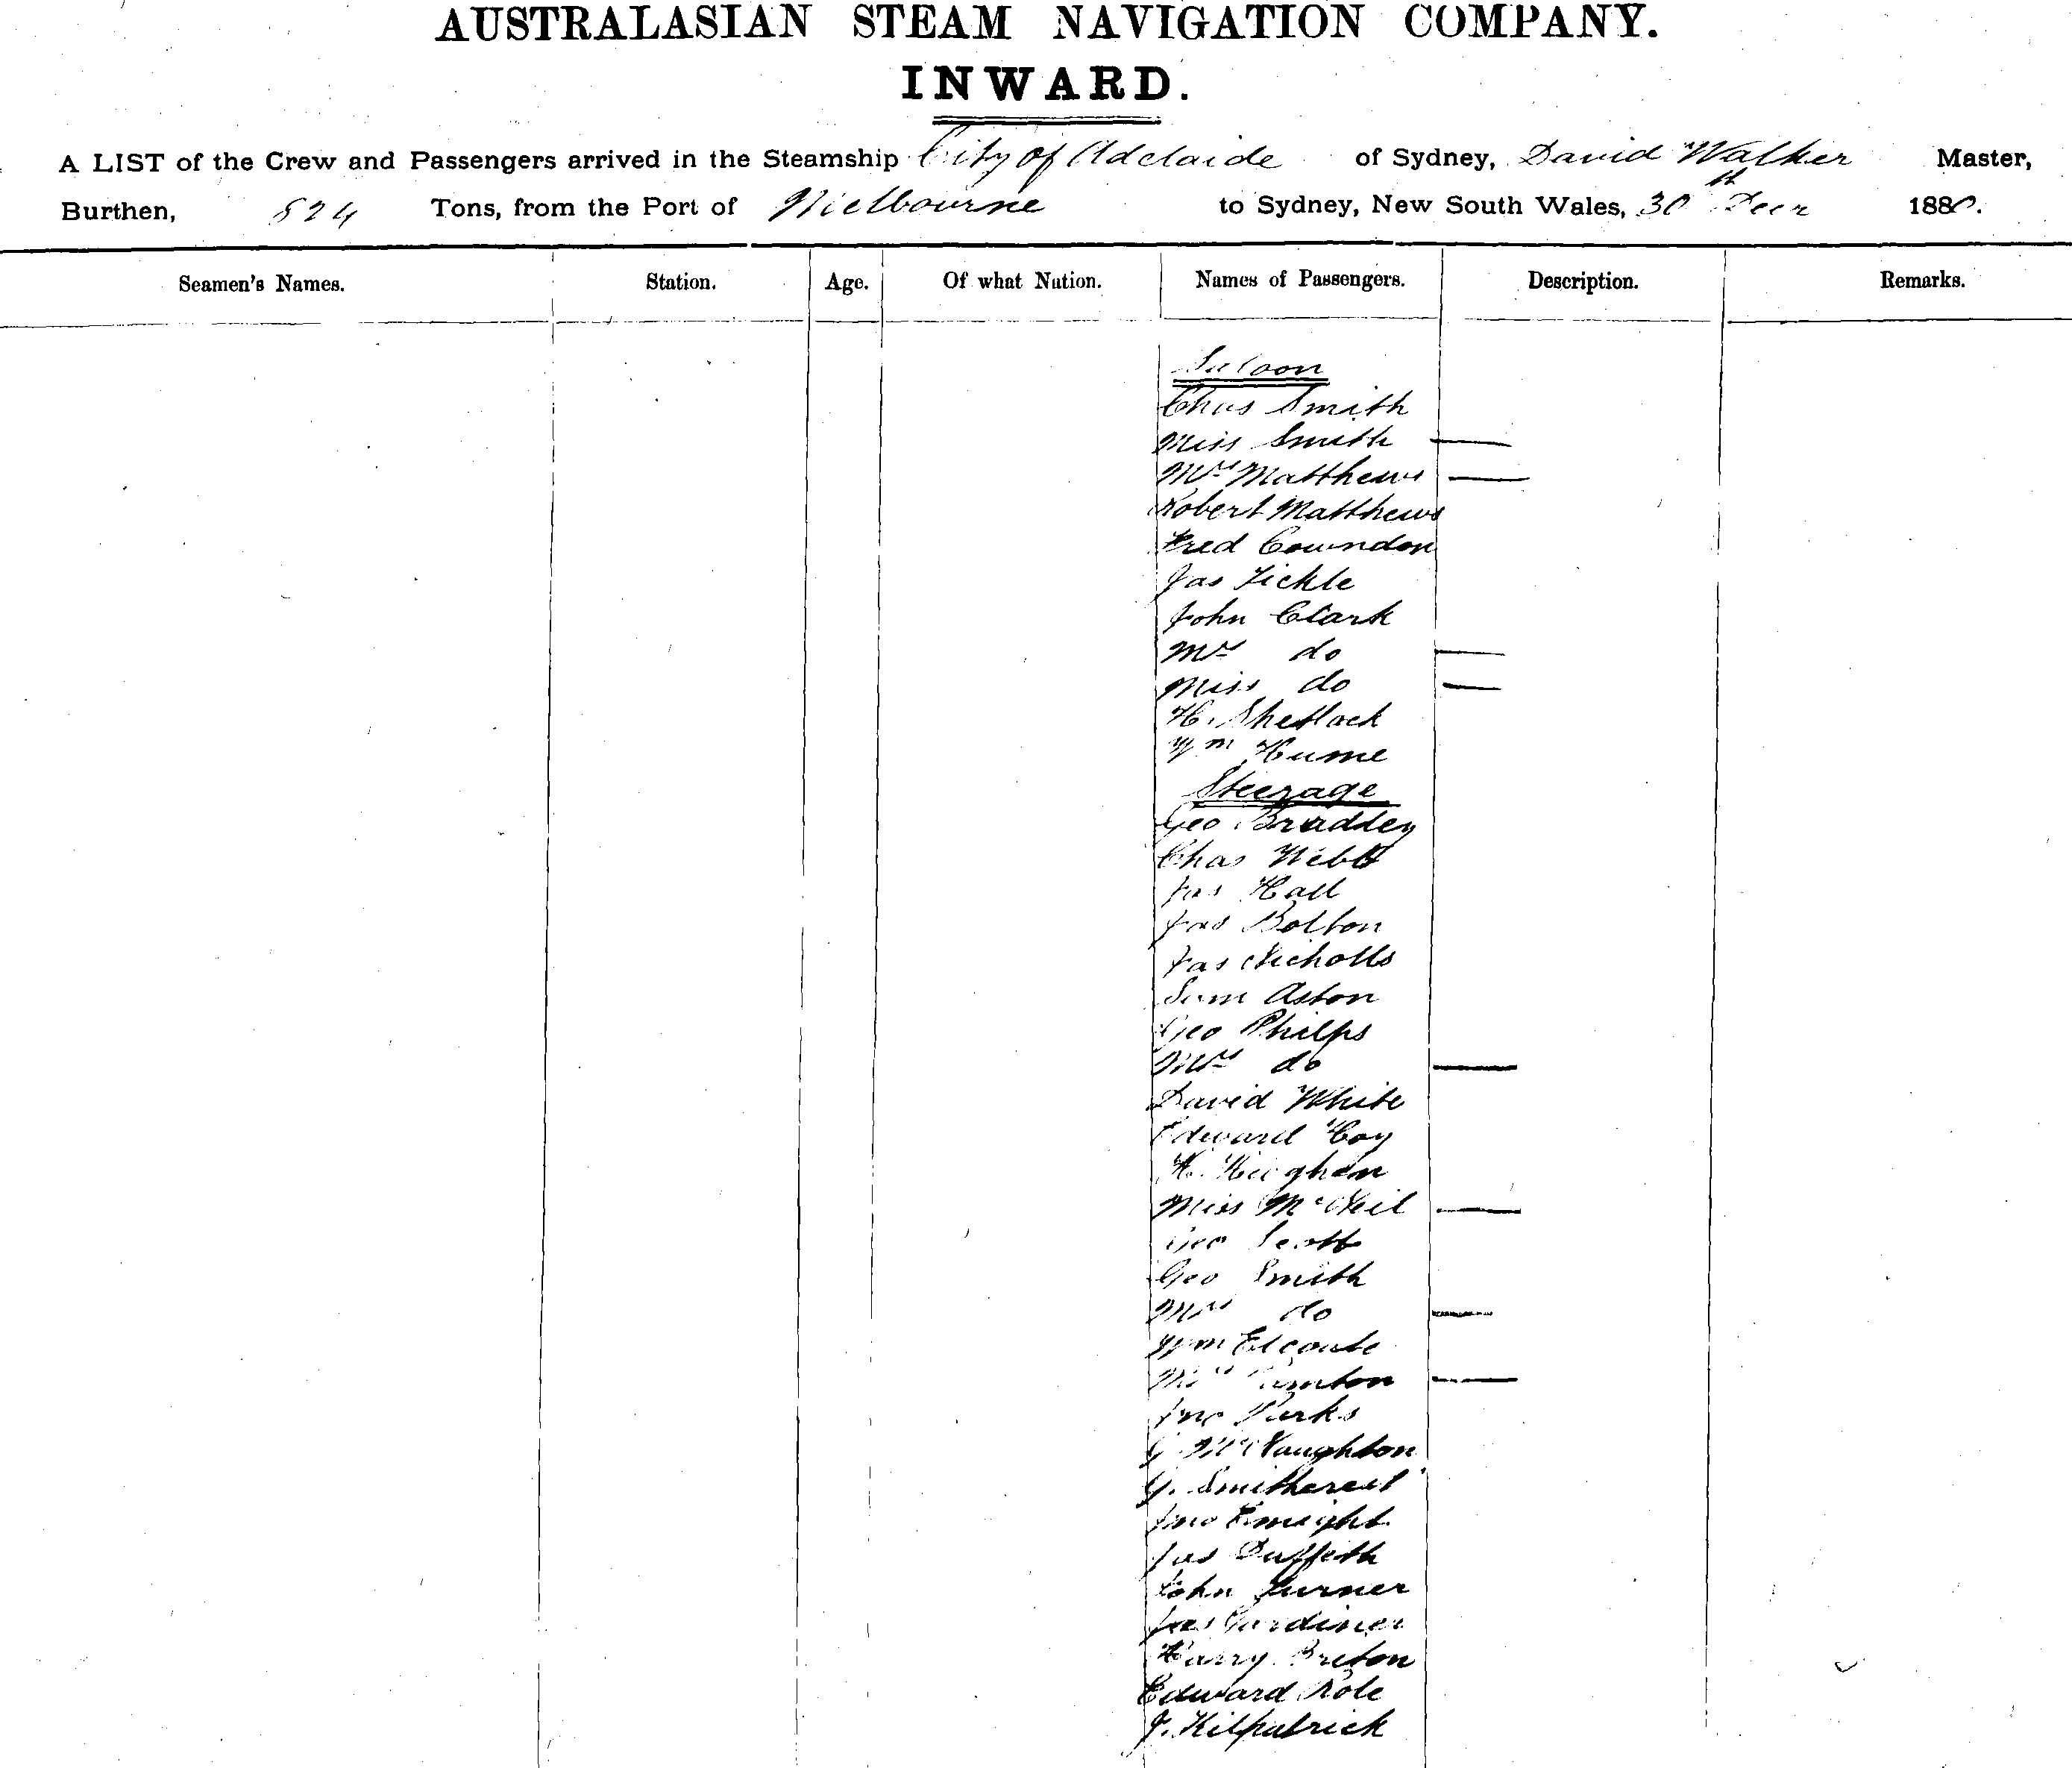 AUSTRALASIAN STEAM NAVIGATION COMPANY.
INWARD.
A LIST of the Crew and Passengers arrived in the Steamship City of Adelaide of Sydney, David Walker Master,
Burthen, 824 Tons, from the Port of Melbourne to Sydney, New South Wales, 30th Decr 1880.
Seamen's Names. Station. Age. Of what Nation. Names of Passengers. Description. Remarks.
Saloon
Chas Smith
Miss Smith
Mrs Matthews
Robert Matthews
Fred Cowndon
Jas Tickle
John Clark
Mrs do
Miss do
H. Sherlock
Wm Hume
Steerage
Geo Bradley
Chas Webb
Jas Hall
Jas Bolton
Jas Nicholls
Sam Aston
Geo Philps
Mrs do
David White
Edward Coy
H.
Miss McNeil
Geo Scott
Geo Smith
Mrs do
Wm Elcoate
Mrs
Jno Parks
McNaughton
G. Smithereal
Jno Enright
Jas Duffeth
John Turner
Jas Gardiner
Harry Breton
Edward Role
J. Kilpatrick